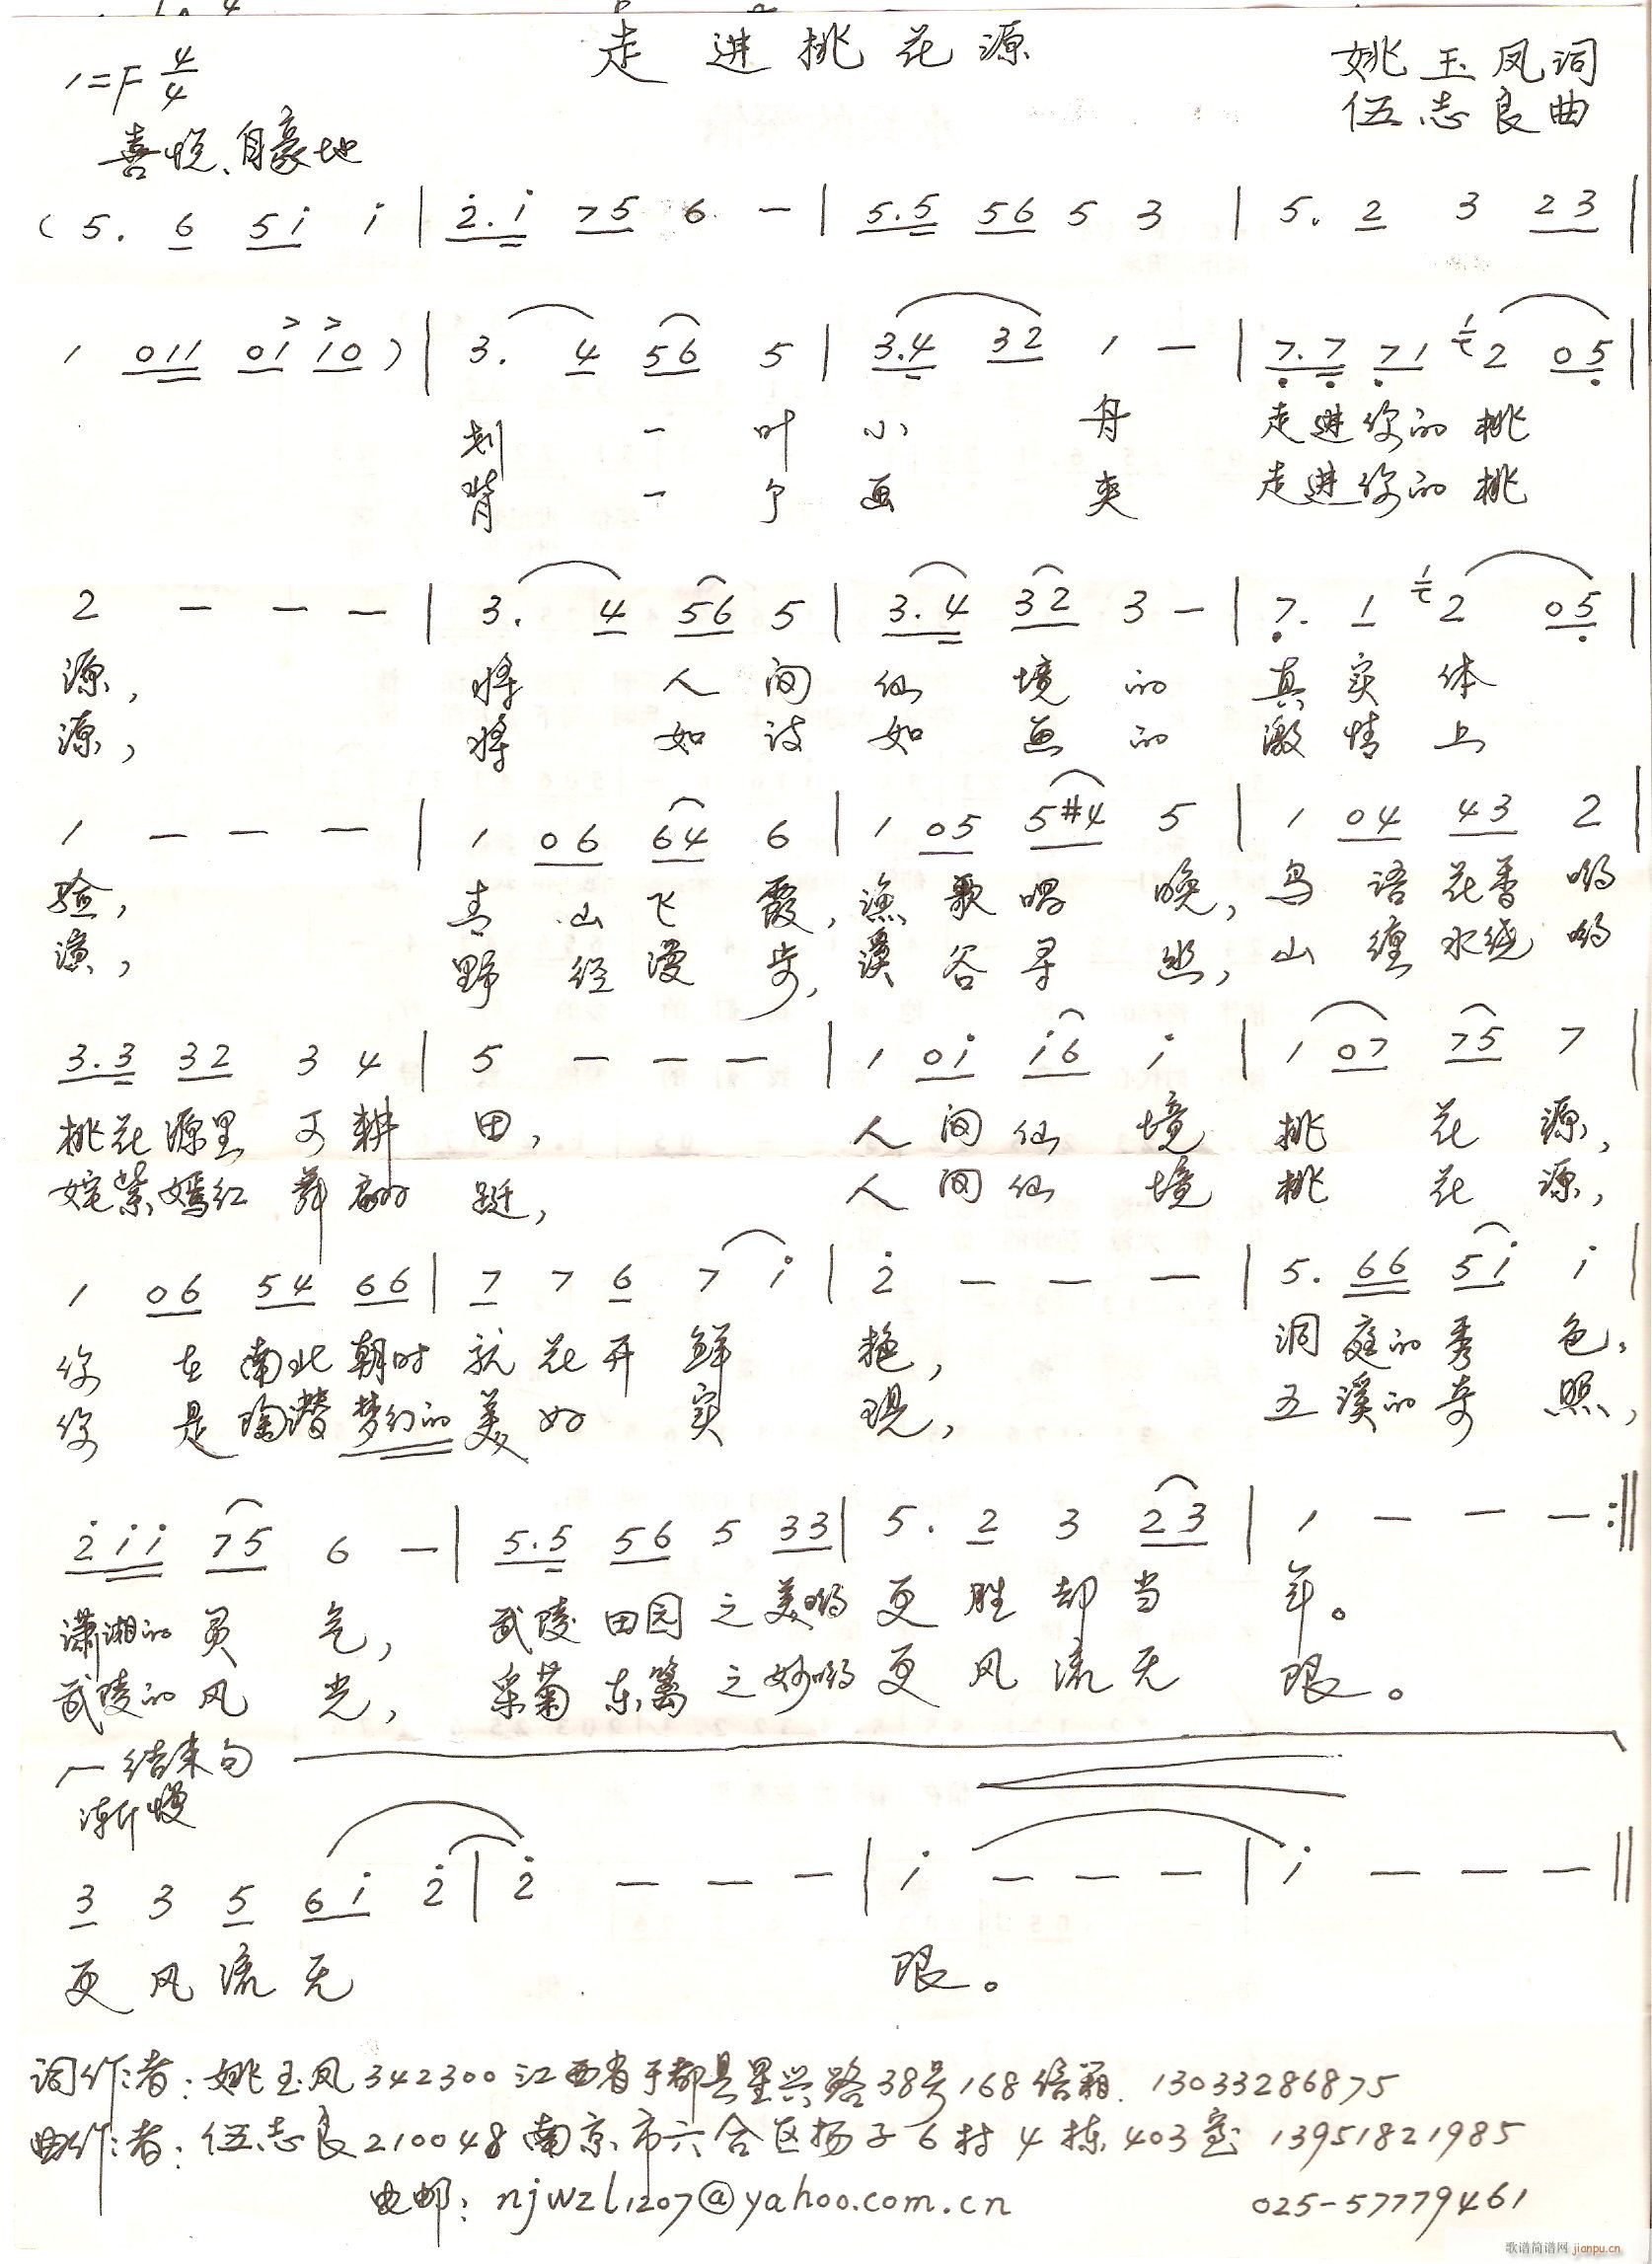 走进桃花源
1=F 4/4
姚玉凤词
伍志良曲
喜悦、自豪地
(5. 6 5i i | 2.i 75 6 — | 5.5 56 5 3 | 5. 2 3 23 |
1 011 01 10) | 3. 4 56 5 | 3.4 32 1 — | 7.7 71 2 05 |
划 一叶小 舟 走进你的桃
背 一个画 夹 走进你的桃
2 — — — | 3. 4 56 5 | 3.4 32 3 — | 7. 1 2 05 |
源, 将 人间仙境的真实体
源, 将 如诗如画的激情上
1 — — — | 1 06 64 6 | 1 05 5#4 5 | 1 04 43 2 |
验, 青山飞霞,渔歌唱晚,鸟语花香哟
演, 野径漫步,溪谷寻幽,山缠水绕哟
3.3 32 3 4 | 5 — — — | 1 0i i6 i | 1 07 75 7 |
桃花源里可耕田, 人间仙境桃花源,
姹紫嫣红舞翩跹, 人间仙境桃花源,
1 06 54 66 | 7 7 6 7 i | 2 — — — | 5. 66 5i i |
你在南北朝时就花开鲜艳, 洞庭的秀色,
你是陶潜梦幻的美好实现, 五溪的奇照,
2ii 75 6 — | 5.5 56 5 33 | 5. 2 3 23 | 1 — — — :||
潇湘的灵气, 武陵田园之美哟更胜却当年。
武陵的风光, 采菊东篱之妙哟更风流无限。
结束句
渐慢
3 3 5 6i 2 | 2 — — — | i — — — | i — — — ||
更风流无 限。
词作者:姚玉凤342300江西省于都县里兴路38号168信箱. 13033286875
曲作者:伍志良210048南京市六合区扬子6村4栋403室 13951821985
电邮:njwzl1207@yahoo.com.cn 025-57779461
歌谱简谱网 jianpu.cn